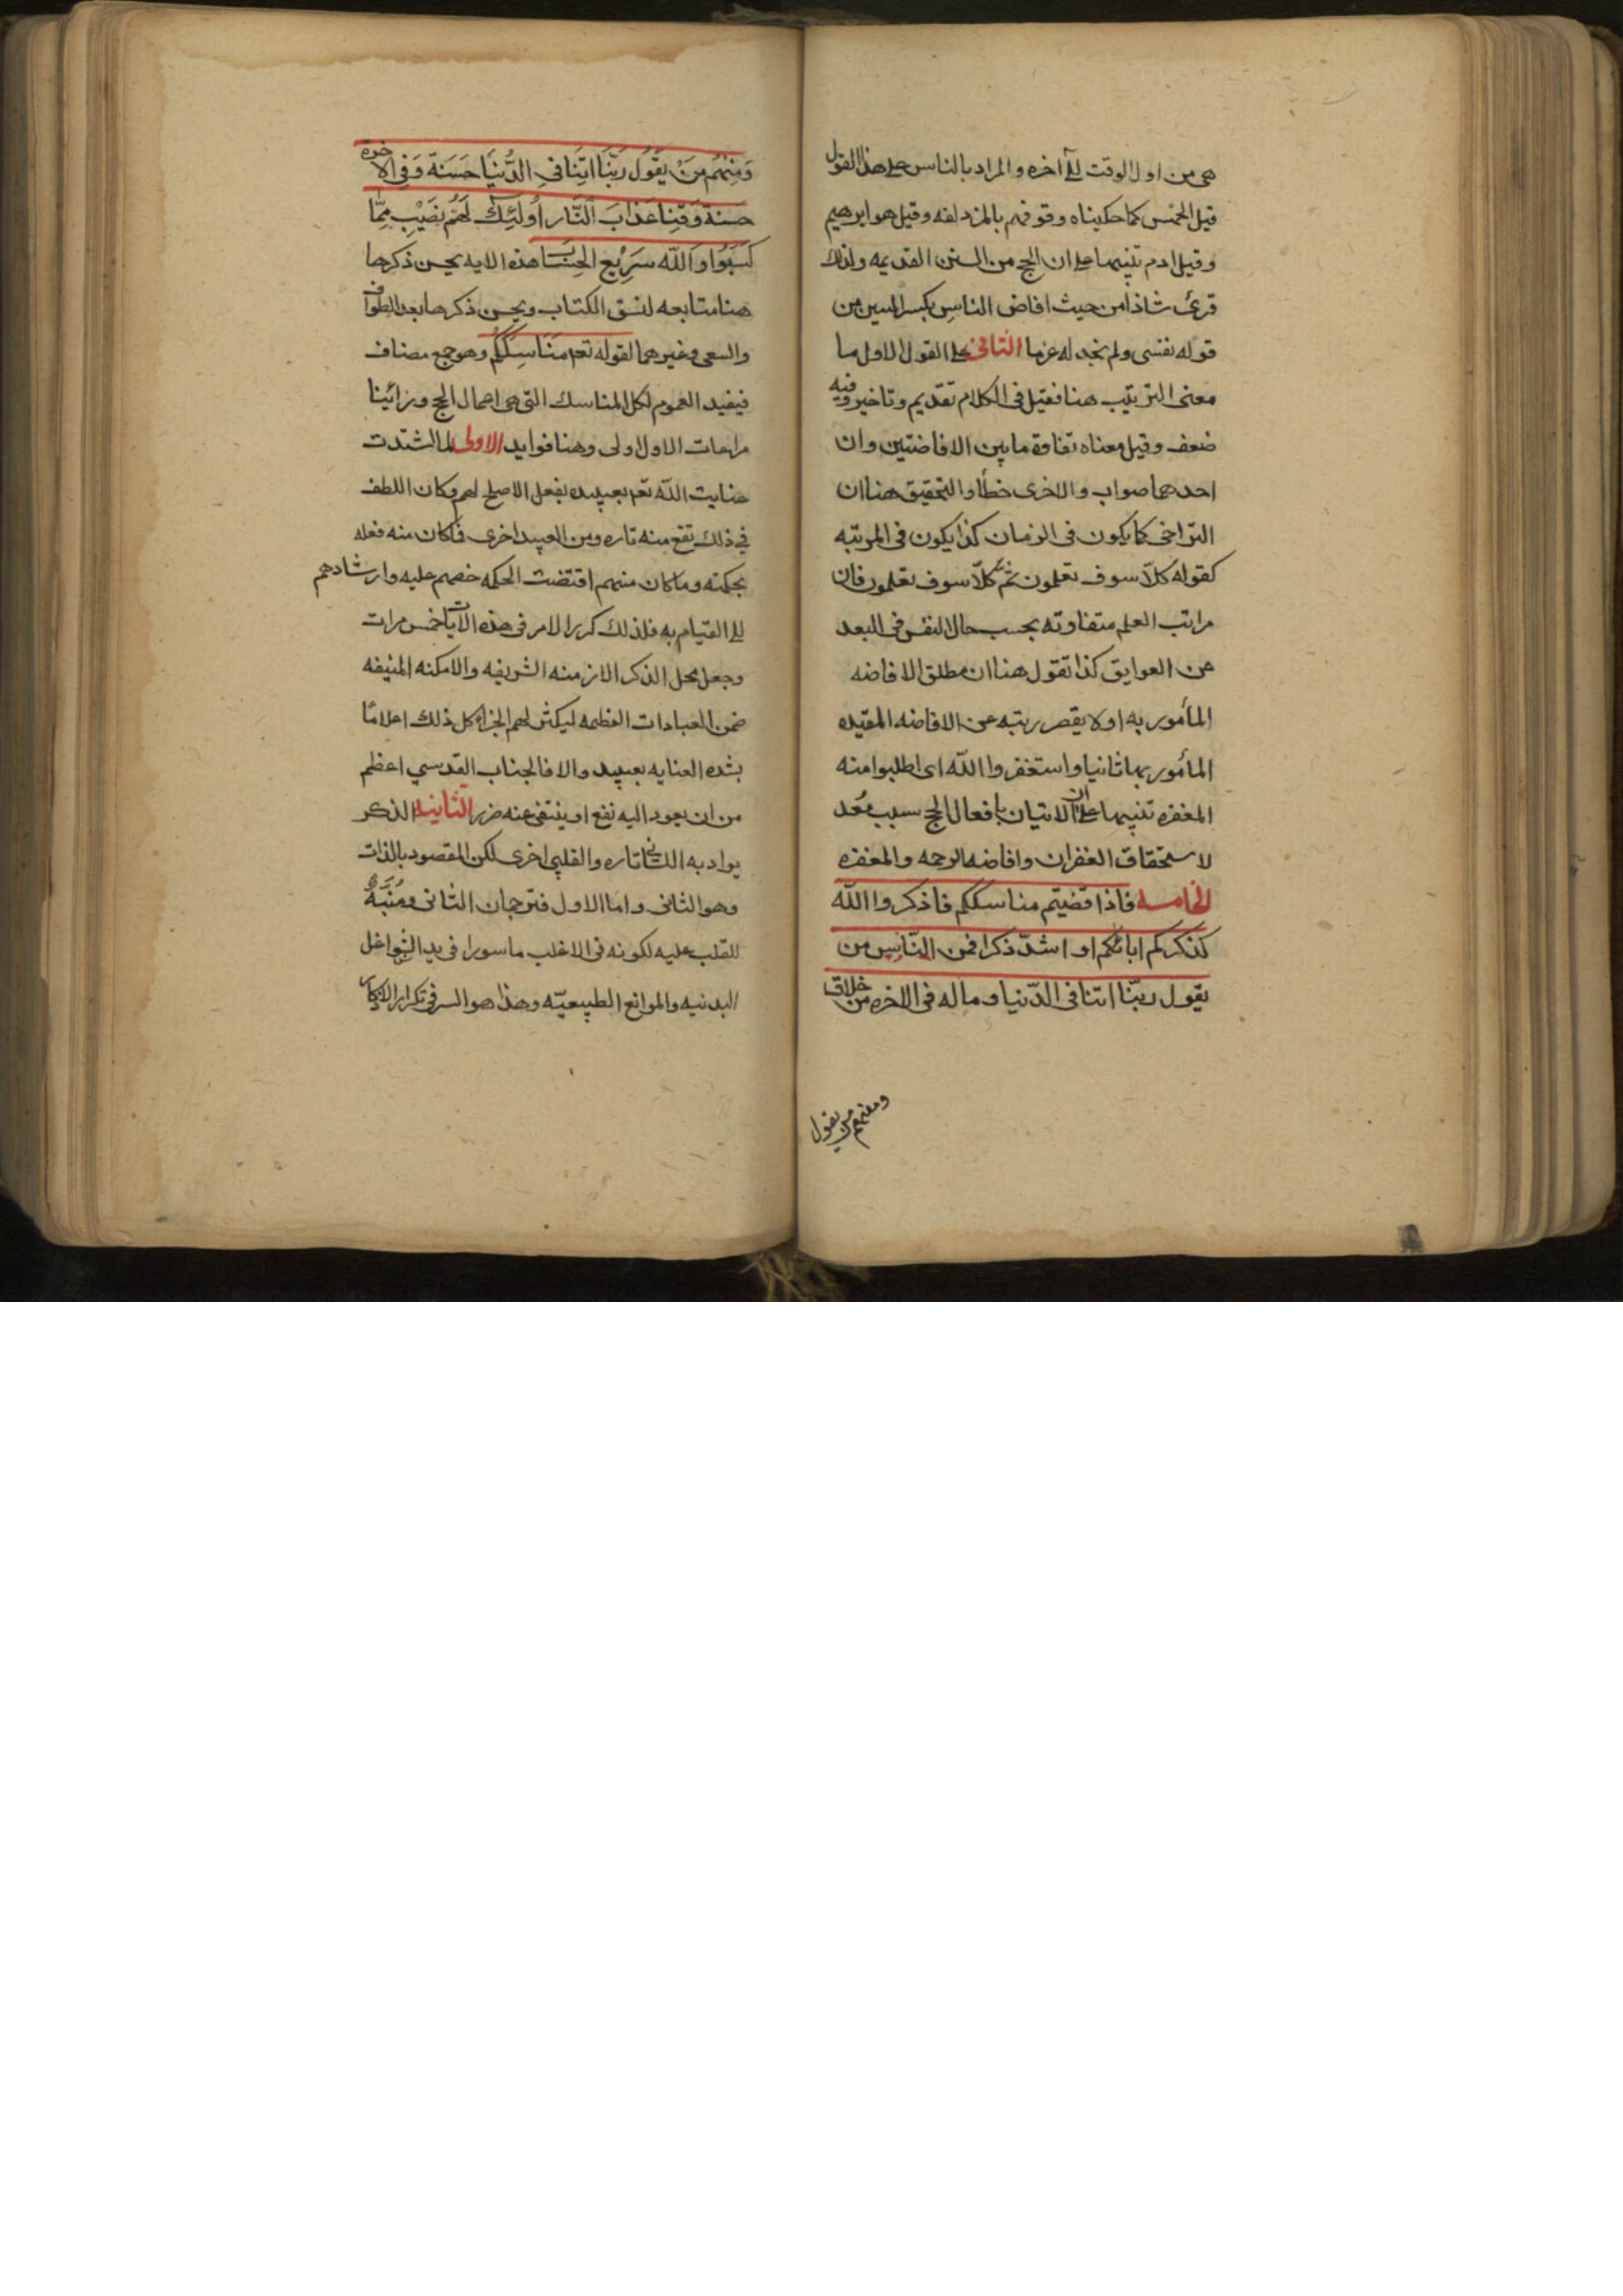 هى من اول الوقت الى آخره والمراد بالناس على هذا القول
قيل الحمس كما حكيناه وقوفهم بالمزدلفه وقيل هو ابرهيم
وقيل ادم تنبيها على ان الحج من السنن القديمه ولذلك
قرئ شاذا من حيث افاض الناسِ بكسر السين من
قوله نفنسى ولم نجد له عزما الثانى على القول الاول ما
معنى الترتيب هنا فقيل فى الكلام تقديم وتاخير وفيه
ضعف وقيل معناه تفاوة ما بين الافاضتين وان
احدهما صواب والاخرى خطأ والتحقيق هنا ان
التراخى كما يكون فى الزمان كذا يكون فى المرتبه
كقوله كلّا سوف تعلمون ثم كلّا سوف تعلمون فان
مراتب العلم متفاوته بحسب حال النفس فى البعد
عن العوايق كذا تقول هنا ان مطلق الافاضه
المأمور به اولا يقصر رتبه عن الافاضه المقيده
المأمور بها ثانيا واستغفروا اللّه اى اطلبوا منه
المغفره تنبيها على ان الاتيان بافعال الحج سبب مُعد
لاستحقاق الغفران وافاضه الرحمه والمغفره
الخامسه فاذا قضيتم مناسككم فاذكروا اللّه
كذكركم ابائكم او اشدّ ذكرا فمن النّاس من
يقول ربّنا اتنا فى الدّنيا وماله فى الاخره من خلاق
ومنهم من يقول
وَمِنْهُم مَنْ يَقُولُ رَبَّنَا اتِنَا فىِ الدُّنْيَا حَسَنَةً وَفِى الاخرة
حسنة وَقِنا عَذابَ النّار اُولئِكَ لَهُم نَصَيْبِ مِمَّا
كَسَبُوْا وَاللّه سَرِيْع الحِسَاب هذه الايه يحسن ذكرها
هنا متابعه لنسق الكتاب ويحسن ذكرها بعد الطواف
والسعى وغيرهما لقوله تعم مَنَاسِكَكُم وهو جمع مضاف
فيفيد العموم لكل المناسك التى هى اعمال الحج ورأينا
مراعات الاول اولى وهنا فوايد الاولى لما اشتدت
عنايت اللّه تعم بعبيده بفعل الاصلح لهم وكان اللطف
فى ذلك تقع منه تاره ومن العبيد اخرى فما كان منه فعله
بحكمته وما كان منهم اقتضت الحكمه حضهم عليه وارشادهم
الى القيام به فلذلك كرر الامر فى هذه الآيات خمس مرات
وجعل محل الذكر الازمنه الشريفه والامكنه المنيفه
ضمن العبادات العظيمه ليكثر لهم الجزاء كل ذلك اعلامًا
بشده العنايه بعبيده والا فالجناب القدسي اعظم
من ان يعود اليه نفع او ينتفى عنه ضرر الثانيه الذكر
يراد به اللسانى تاره والقلبى اخرى لكن المقصود بالذات
وهو الثانى واما الاول فترجمان الثانى ومُنَبِّهٌ
للقلب عليه لكونه فى الاغلب ماسورا فى يد الشواغل
البدنيه والموانع الطبيعيّه وهذا هو السر فى تكرار الاذكار